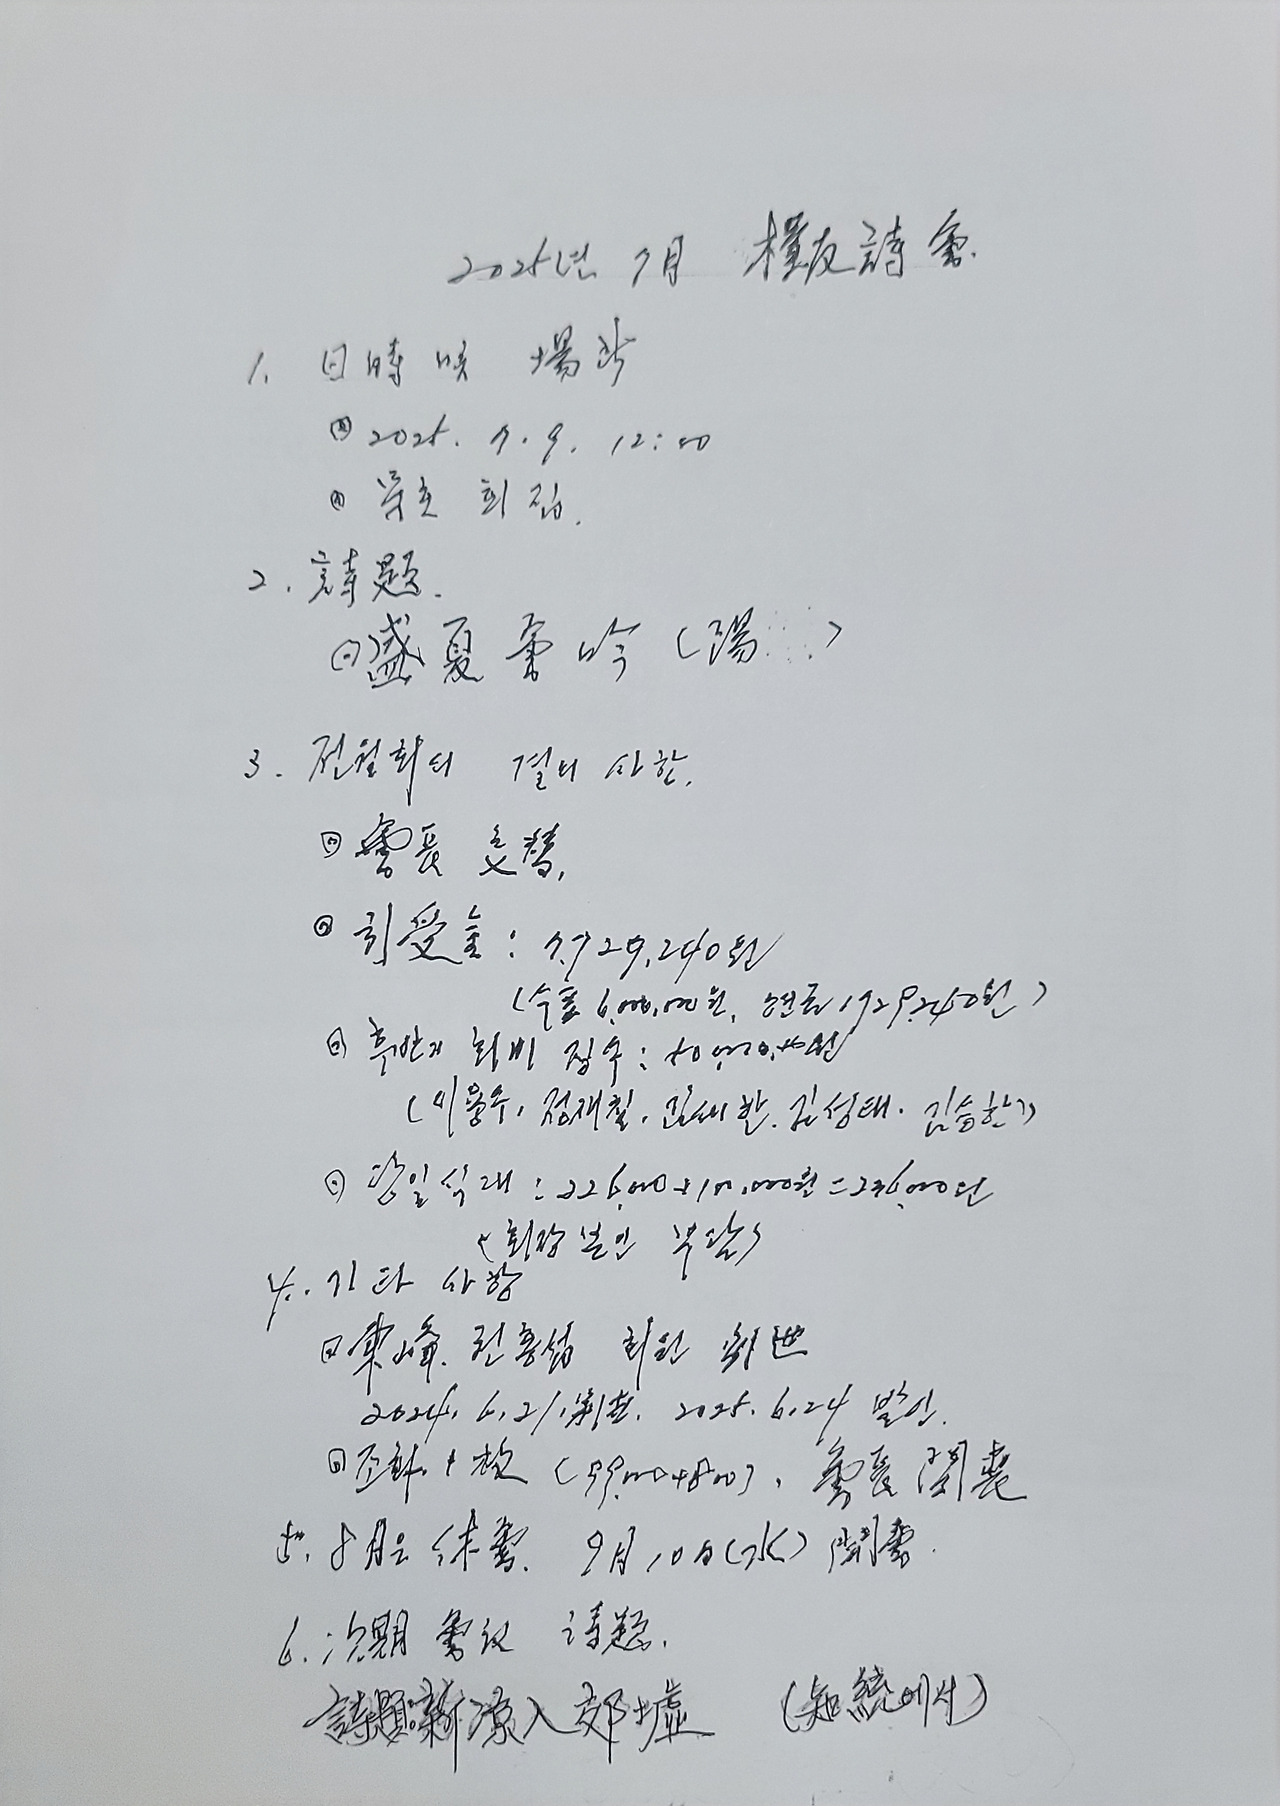 2025년 7月 槿友詩會.
1. 日時 및 場所
2025. 7. 9. 12:00
회집.
2. 詩題.
盛夏會吟 (陽 )
3. 전월회의 결의 사항.
會長 交替.
引受金 : 7,929,240원
(수표 6,000,000원, 현금 1929,240원)
후반기 회비 징수 : 원
(이용수, 정재칠, 김성태. 김승한)
당일식대 : 226,000+10,000원=236,000원
(회장 본인 부담)
4. 기타 사항
東峰. 전홍섭 회원 別世
2024. 6. 21. 別世. 2025. 6. 24 발인.
조화. 1 枚 (99,000+800), 會長 問喪
5. 8月은 休會. 9月 10日(水) 開會.
6. 次期 會議 詩題.
詩題: 新凉入郊墟 (知統에서)